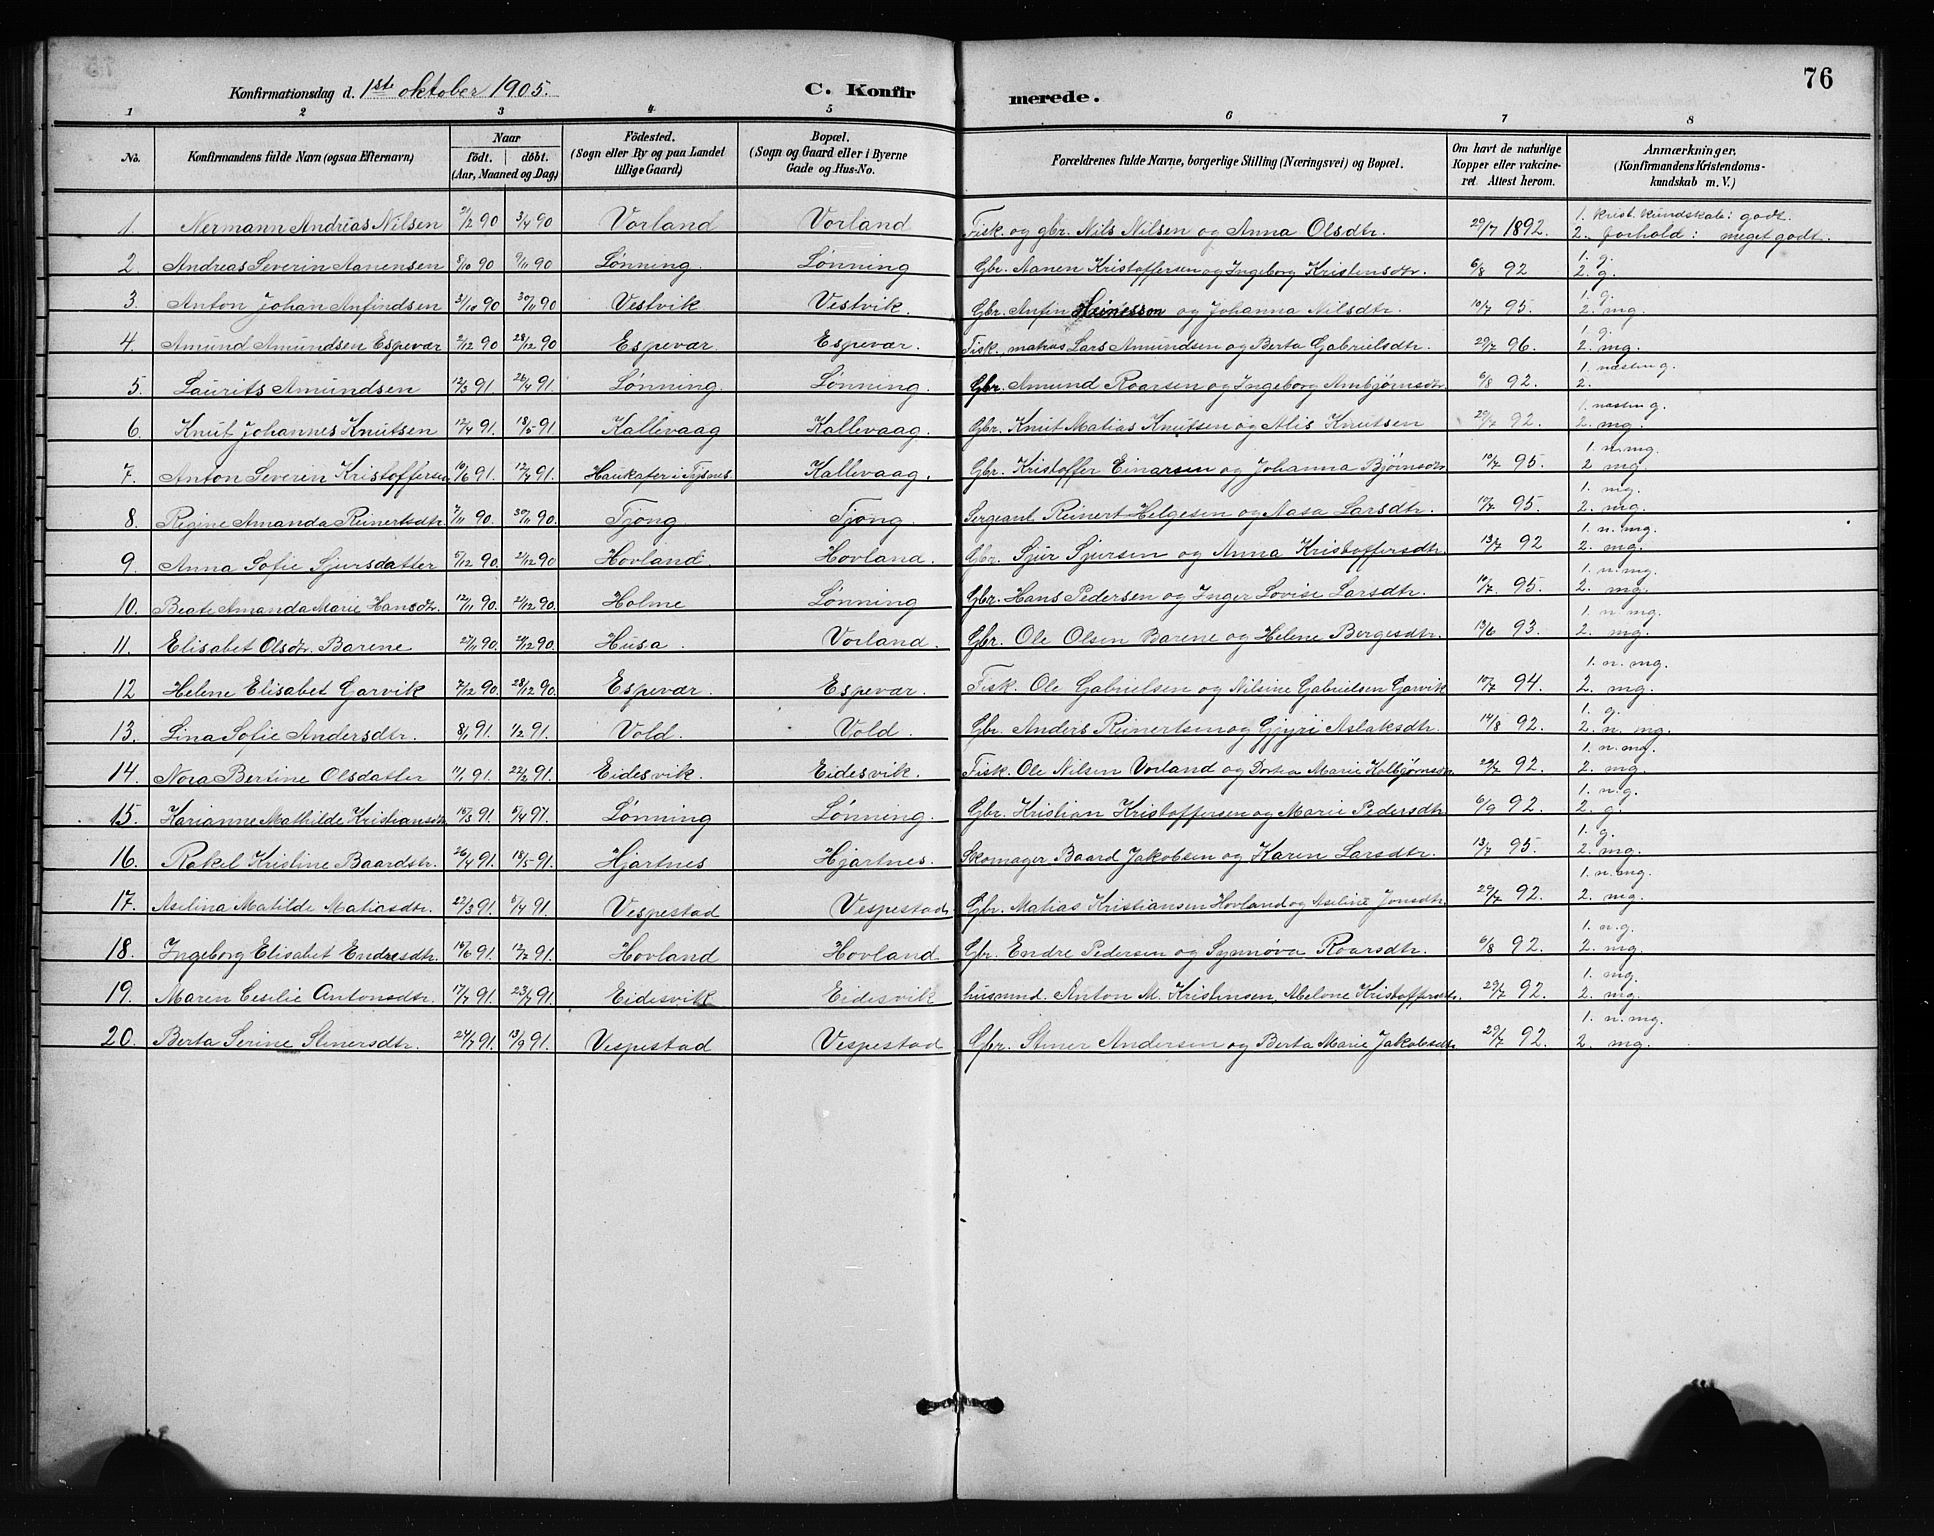 76
Konfirmationsdag d. 1ste oktober 1905.
C. Konfirmerede.
1 2 3 4 5 6 7 8
No.
Konfirmandens fulde Navn (ogsaa Efternavn)
Naar
födt. döbt.
(Aar, Maaned og Dag)
Födested.
(Sogn eller By og paa Landet
tillige Gaard)
Bopæl.
(Sogn og Gaard eller i Byerne
Gade og Hus-No.
Forældrenes fulde Navne, borgerlige Stilling (Næringsvei) og Bopæl.
Om havt de naturlige
Kopper eller vakcine-
ret Attest herom.
Anmærkninger.
(Konfirmandens Kristendoms-
kundskab m. V.)
1. Nermann Andreas Nilsen 2/2 90 3/4 90 Vorland Vorland Fisk. og gbr. Nils Nilsen og Anna Olsdtr. 29/7 1892. 1. krist. kundskab: godt. 2. forhold: meget godt.
2. Andreas Severin Aanensen 5/10 90 9/11 90 Lønning. Lønning Gbr. Aanen Kristoffersen og Ingeborg Kristensdtr. 6/8 92 1. g. 2. g.
3. Anton Johan Anfindsen 31/10 90 30/11 90 Vestvik Vestvik. Gbr. Anfin og Johanna Nilsdtr. 10/7 95. 1. g. 2. mg.
4. Amund Amundsen Espevær 2/12 90 28/12 90 Espevær. Espevær. Fisk. matros Lars Amundsen og Berta Gabrielsdtr. 29/7 96. 1. g. 2. mg.
5. Laurits Amundsen 12/3 91. 26/4 91. Lønning. Lønning. Gbr. Amund Roarsen og Ingeborg Arnbjørnsdtr. 6/8 92. 1. næsten g. 2.
6. Knut Johannes Knutsen 12/4 91. 18/5 91 Kallevaag Kallevaag. Gbr. Knut Matias Knutsen og Alis Knutsen 29/7 92. 1. næsten g. 2. mg.
7. Anton Severin Kristoffersen 10/6 91. 12/7 91. i Tysnes Kallevaag. Gbr. Kristoffer Einarsen og Johanna Bjørnsdtr 10/7 95. 1. n. mg. 2 mg
8. Regine Amanda Reinertsdtr. 7/11 90. 30/11 90. Tjong Tjong. Sergeant Reinert Helgesen og Aasa Larsdtr. 10/7 95. 1. mg. 2. mg.
9. Anna Sofie Sjursdatter 5/12 90. 21/12 90 Hovland. Hovland. Gbr. Sjur Sjursen og Anna Kristoffersdtr. 13/7 92 1. n. mg. 2. mg.
10. Beate Amanda Marie Hansdtr. 12/11 90. 21/12 90. Holme Lønning Gbr. Hans Pedersen og Inger Lovise Larsdtr. 10/7 95. 1. n. mg. 2. mg.
11. Elisabet Olsdtr. Barene 27/11 90. 21/12 90. Husa. Vorland. Gbr. Ole Olsen Barene og Helene Bergesdtr. 13/6 93. 1. n mg. 2. mg.
12 Helene Elisabet Garvik 7/12 90. 28/12 90. Espevær. Espevær. Fisk. Ole Gabrielsen og Nilsine Gabrielsen Garvik 10/7 94. 1. n. mg. 2. mg.
13. Lina Sofie Andersdtr. 8/1 91. 1/2 91. Vold. Vold. Gbr. Anders Reinertsen og Gjyri Aslaksdtr. 14/8 92. 1. g. 2. n. mg.
14. Nora Bertine Olsdatter 11/1 91. 22/2 91. Eidesvik. Eidesvik. Fisk. Ole Nilsen Vorland og Dortea Marie Kolbjørnsdtr 29/7 92. 1. n. mg. 2. mg.
15. Karianne Mathilde Kristiansdtr 15/3 91. 5/4 91. Lønning Lønning. Gbr. Kristian Kristoffersen og Marie Pedersdtr. 6/9 92. 1. n. g. 2. g.
16. Rakel Kristine Baardstr. 26/4 91. 18/5 91. Hjartnes Hjartnes. Skomager Baard Jakobsen og Karen Larsdtr. 13/7 95. 1. g. 2. mg.
17. Aselina Matilde Matiasdtr. 22/3 91. 5/4 91. Vespestad Vespestad. Gbr. Matias Kristiansen Hovland og Aseline Jonsdtr. 29/7 92. 1. n. mg. 2. mg.
18. Ingeborg Elisabet Endresdtr. 15/6 91. 12/7 91. Hovland Hovland. Gbr. Endre Pedersen og Synnøva Roarsdtr. 6/8 92. 1. n. g. 2. mg.
19. Maren Cesilie Antonsdtr. 17/7 91. 23/7 91. Eidesvik Eidesvik husmnd. Anton M. Kristensen, Abelone Kristoffersdtr. 29/7 92. 1. mg. 2. mg.
20. Berta Serine Stenersdtr. 24/7 91. 13/9 91. Vespestad Vespestad. Gbr. Stener Andersen og Berta Marie Jakobsdtr. 29/7 92. 1. n. mg. 2. mg.